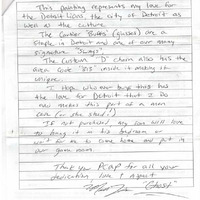 This painting represents my love for
the Detroit Lions, the city of Detroit as
well as the culture.
The Cartier "Buffs" (glasses) are a
staple in Detroit and are of our many
signature "Swags".
The custom "D" chain also has the
area code "313" inside it making it
unique.
I hope who ever buys this has
the love for Detroit that I do
and makes this part of a man
cave (or she shed!)
If not purchased my son will love
to bring it in his bedroom or
wait for me to come home and put in
our game room.
Thank you PCAP for all your
dedication, love & support
"Ghost"